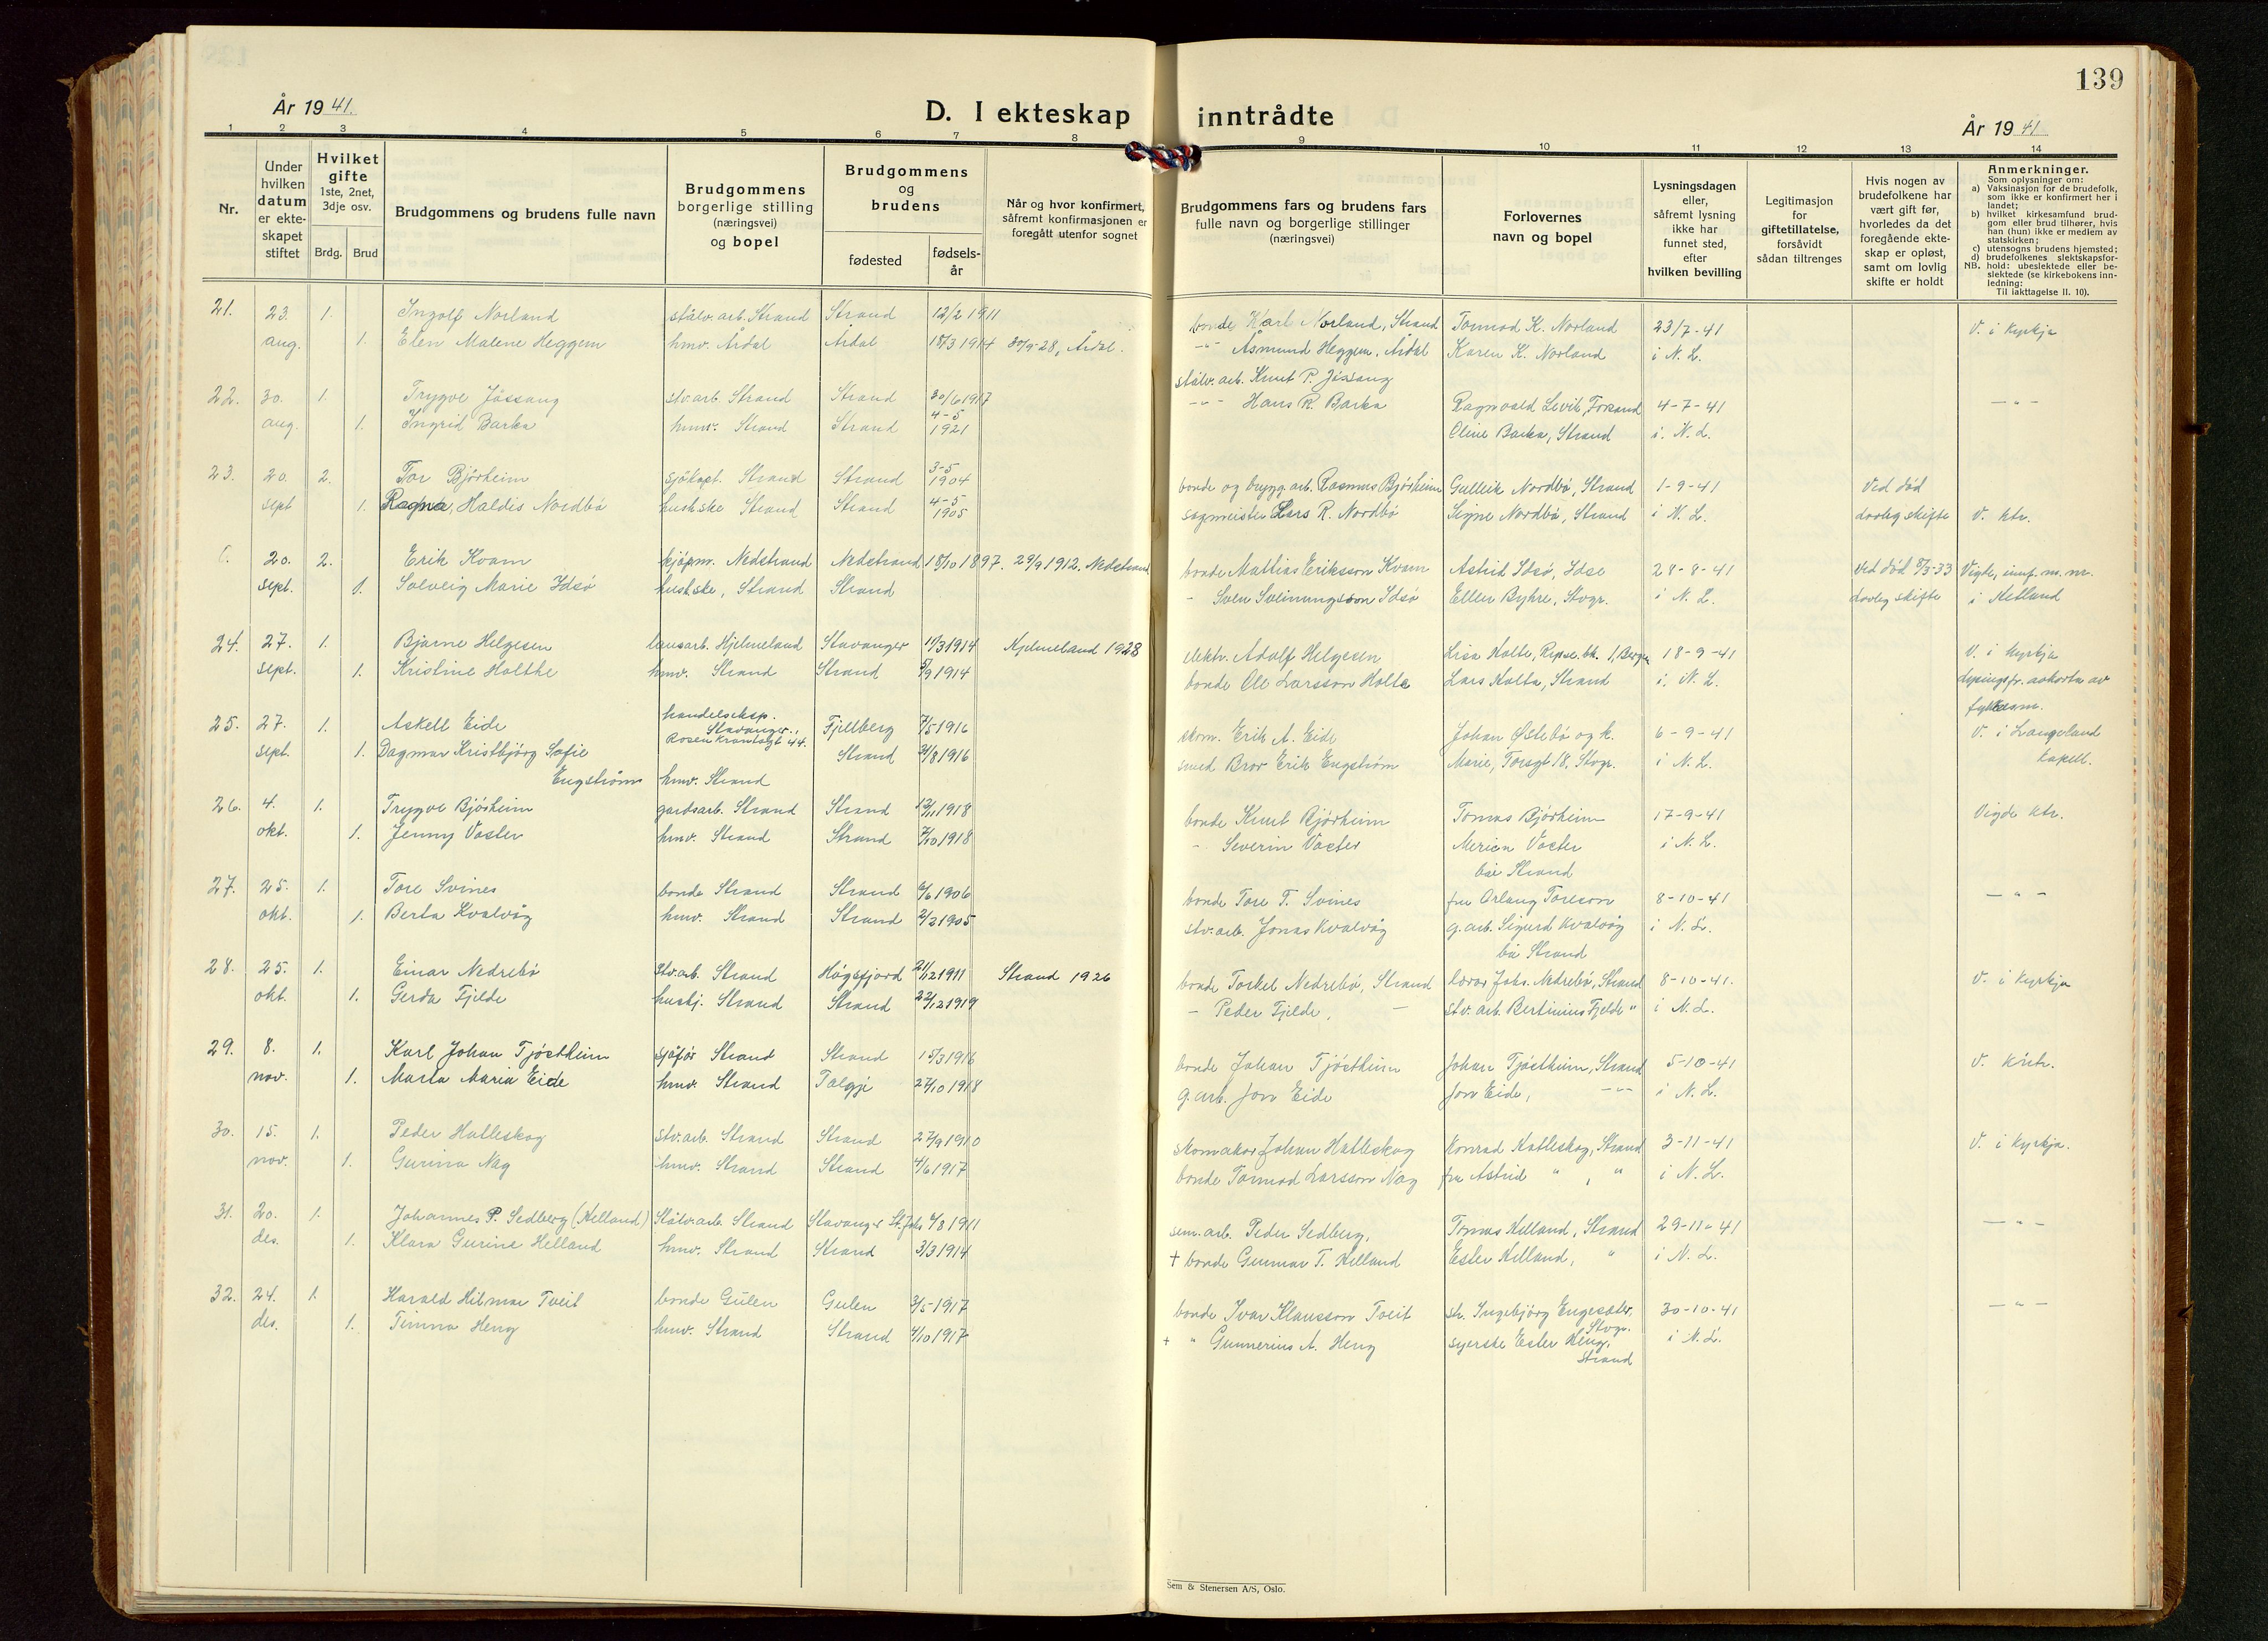 139
År 1941.
D. I ekteskap inntrådte
År 1941
1 2 3 4 5 6 7 8 9 10 11 12 13 14
Nr.
Under hvilken datum er ekte-skapet stiftet
Hvilket gifte 1ste, 2net, 3dje osv.
Brdg. Brud
Brudgommens og brudens fulle navn
Brudgommens borgerlige stilling (næringsvei) og bopel
Brudgommens og brudens
fødested
fødsels-år
Når og hvor konfirmert, såfremt konfirmasjonen er foregått utenfor sognet
Brudgommens fars og brudens fars fulle navn og borgerlige stillinger (næringsvei)
Forlovernes navn og bopel
Lysningsdagen eller, såfremt lysning ikke har funnet sted, efter hvilken bevilling
Legitimasjon for giftetillatelse, forsåvidt sådan tiltrenges
Hvis nogen av brudefolkene har vært gift før, hvorledes da det foregående ekte-skap er opløst, samt om lovlig skifte er holdt
Anmerkninger.
Som oplysninger om:
a) Vaksinasjon for de brudefolk, som ikke er konfirmert her i landet;
b) hvilket kirkesamfund brud-gom eller brud tilhører, hvis han (hun) ikke er medlem av statskirken;
c) utensogns brudens hjemsted;
d) brudefolkenes slektskapsfor-hold: ubeslektede eller be-slektede (se kirkebokens inn-ledning:
NB.
Til iakttagelse II. 10).
21. 23. 1. Ingolf Norland stålv.arb. Strand Strand 12/2 1911 bonde Karl Norland, Strand Tormod K. Norland 23/7-41 V. i kyrkja
aug. 1. Elen Malene Heggem hmv. Årdal Årdal 18/3 1914 30/9-28, Årdal. -"- Åsmund Heggem, Årdal Karen K. Norland i N. L.
22. 30. 1. Trygve Jøssang stv.arb. Strand Strand 30/6 1917 stålv. arb. Knut P. Jøssang Ragnvald Levik, Forsand 4-7-41 -"-
aug. 1. Ingrid Barka hmv. Strand Strand 4-5 1921 -"- Hans R. Barka Oline Barka, Strand i. N. L.
23. 20. 2. Tor Bjørheim sjökapt. Strand Strand 3-5 1904 bonde og bygg.arb. Rasmus Bjørheim Gulleik Nordbø, Strand 1-9-41 Ved død
sept 1. Ragna, Haldis Nordbø hushske Strand Strand 4-5 1905 sagmeister Lars R. Nordbø Signe Nordbø, Strand i N. L. lovleg skifte V. ktr.
20. 2. Erik Kvam kjøpm. Nedstrand Nedstrand 18/10 1897. 29/9 1912. Nedstrand bonde Mattias Eriksson Kvam Astrid Idsø, Idse 28-8-41 ved død 7/3-33 Vigde, innf. m. nr.
sept. 1. Solveig Marie Idsø hushske, Strand Strand - Sven Sveinungsson Idsø Ellen Byhre, Stvgr. i N. L. lovleg skifte i Hetland
24. 27. 1. Bjarne Helgesen lausarb. Hjelmeland Stavanger 11/3 1914 Hjelmeland 1928 elektr. Adolf Helgesen Lisa Holte, Repsl.bk. 1, Bergen 18-9-41 V. i kyrkja
sept. 1. Kristine Holthe hmv. Strand Strand 5/9 1914 bonde Ole Larsson Holte Lars Holta, Strand i. N. L. Lysingsfr. avkorta av fylkesm.
25. 27. 1. Askell Eide handelseksp. Stavanger, Rosenkrantzgt 44. Fjellberg 7/5 1916 skom. Erik A. Eide Johan Østebø og k. 6-9-41 V. i Langeland
sept. 1. Dagmar Kristbjørg Sofie Engstrøm hmv. Strand Strand 21/8 1916 smed Bror Erik Engström Marie, Torsgt 18, Stvgr. i N. L. kapell.
26. 4. 1. Trygve Bjørheim gardsarb. Strand Strand 12/11 1918 bonde Knut Bjørheim Tomas Bjørheim 17-9-41 Vigde ktr.
okt. 1. Jenny Voster hmv. Strand Strand 7/10 1918 - Severin Voster Merien Voster i N. L.
bæ Strand
27. 25. 1. Tore Svines bonde Strand Strand 6/6 1906 bonde Tore T. Svines fru Orlaug Toreson 8-10-41 -"-
okt. 1. Berta Kvalvåg hmv. Strand Strand 2/2 1905 stv.arb. Jonas Kvalvåg g.arb. Sigurd Kvalvåg i N. L.
bæ Strand
28. 25. 1. Einar Nedrebø stv.arb. Strand Høgsfjord 21/12 1911 Strand 1926 bonde Torkel Nedrebø, Strand lærar Johs. Nedrebø, Strand 8-10-41. V. i kyrkja
okt. 1. Gerda Fjelde hushj. Strand Strand 22/12 1919 - Peder Fjelde, - stv. arb. Bertinius Fjelde " i N. L.
29. 8. 1. Karl Johan Tjøstheim sjåfør Strand Strand 15/3 1916 bonde Johan Tjøstheim Johan Tjøstheim, Strand 5-10-41 V. kntr.
nov. 1. Marta Maria Eide hmv. Strand Talgje 27/10 1918 g.arb. Jon Eide Jon Eide, -"- i N. L.
30. 15. 1. Peder Hatleskog stv.arb. Strand Strand 27/9 1910 skomakar Johan Hatleskog Konrad Hatleskog, Strand 3-11-41 V. i kyrkja.
nov. 1. Gurina Nag hmv. Strand Strand 4/6 1917 bonde Tormod Larsson Nag fru Astrid " , " i N. L.
31. 20. 1. Johannes P. Sedberg (Helland) Stålv.arb. Strand Stavanger St. Joh. 6/8 1911 sem.arb. Peder Sedberg, Tomas Helland, Strand 29-11-41 -"-
des. 1. Klara Gurine Helland hmv. Strand Strand 3/3 1914 + bonde Gunnar T. Helland Ester Helland, " i N. L.
32. 24. 1. Harald Hilmar Tveit bonde Gulen Gulen 3/5-1917 bonde Ivar Klausson Tveit st. Ingebjørg Engesæter, Stvgr. 30-10-41 -"-
des. 1. Timna Heng hmv. Strand Strand 4/10 1917 + " Gunnerius A. Heng syerske Ester Heng, Strand i N. L.
Sem & Stenersen A/S, Oslo.